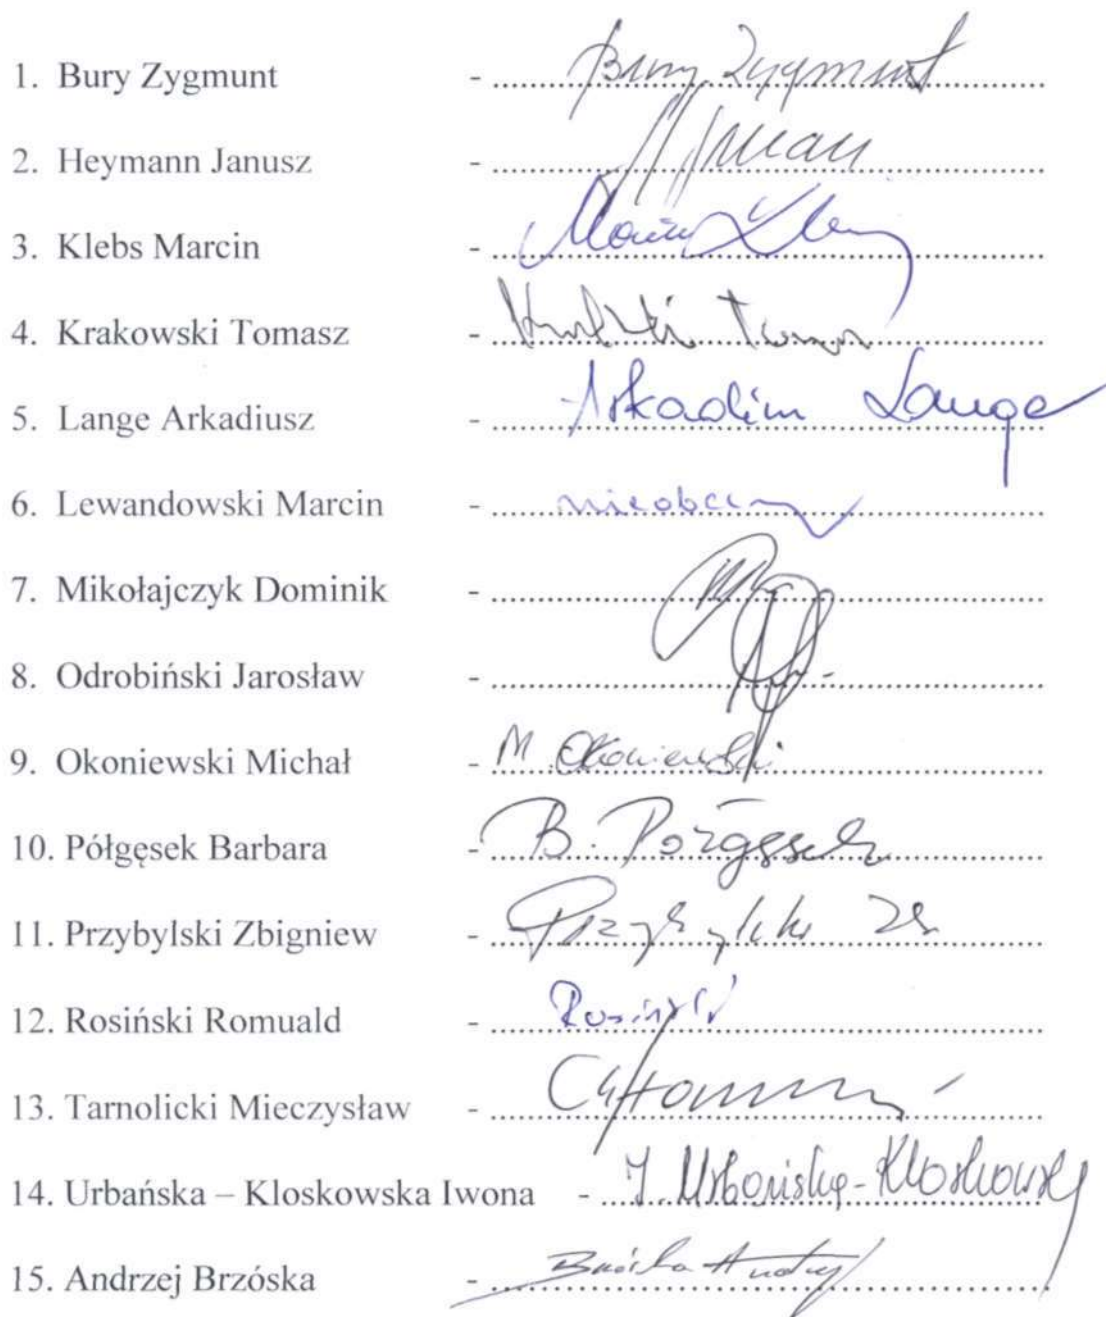 1. Bury Zygmunt - Bury Zygmunt
2. Heymann Janusz -
3. Klebs Marcin - Marcin
4. Krakowski Tomasz -
5. Lange Arkadiusz - Lange
6. Lewandowski Marcin - nieobecny
7. Mikołajczyk Dominik -
8. Odrobiński Jarosław -
9. Okoniewski Michał - M Okoniewski
10. Półgęsek Barbara - B. Półgęsek
11. Przybylski Zbigniew - Przybylski
12. Rosiński Romuald - Rosiński
13. Tarnolicki Mieczysław -
14. Urbańska – Kloskowska Iwona - I Urbańska-Kloskowska
15. Andrzej Brzóska - Brzóska Andrzej